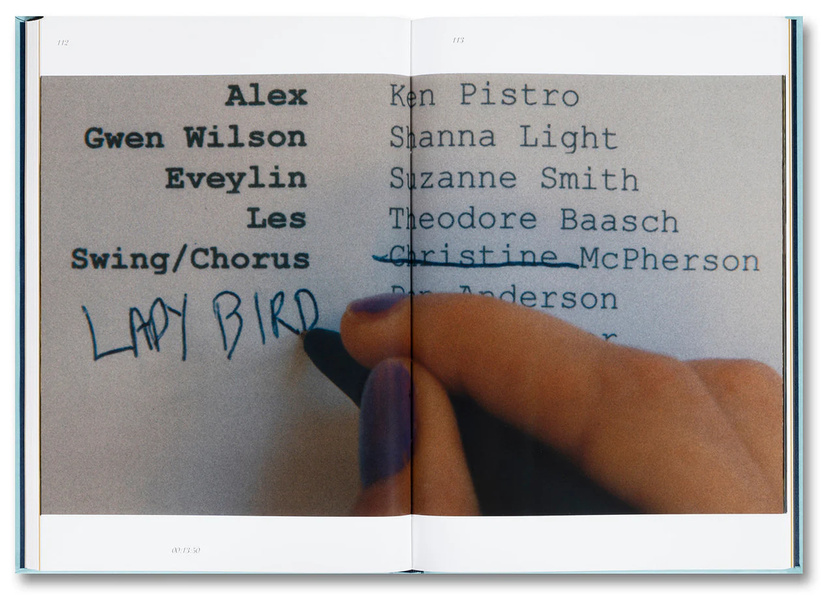 112
113
Alex Ken Pistro
Gwen Wilson Shanna Light
Eveylin Suzanne Smith
Les Theodore Baasch
Swing/Chorus Christine McPherson
Anderson
LADY BIRD
00:13:50